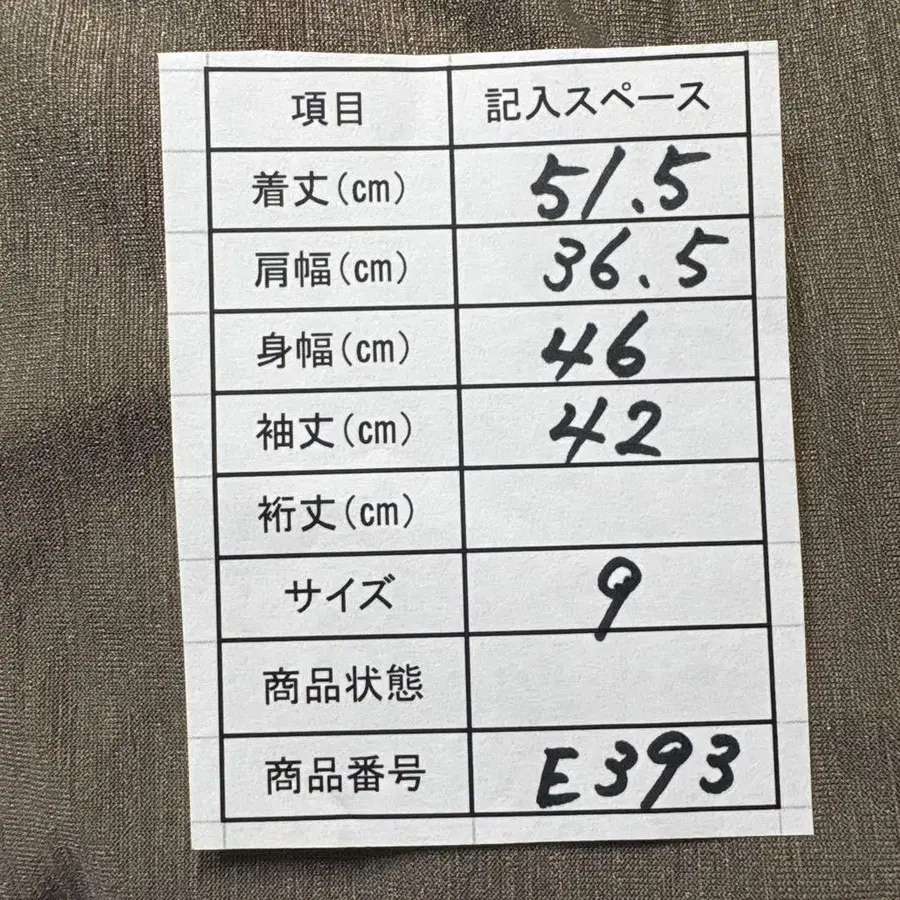 項目 記入スペース
着丈(cm) 51.5
肩幅(cm) 36.5
身幅(cm) 46
袖丈(cm) 42
裄丈(cm)
サイズ 9
商品状態
商品番号 E393